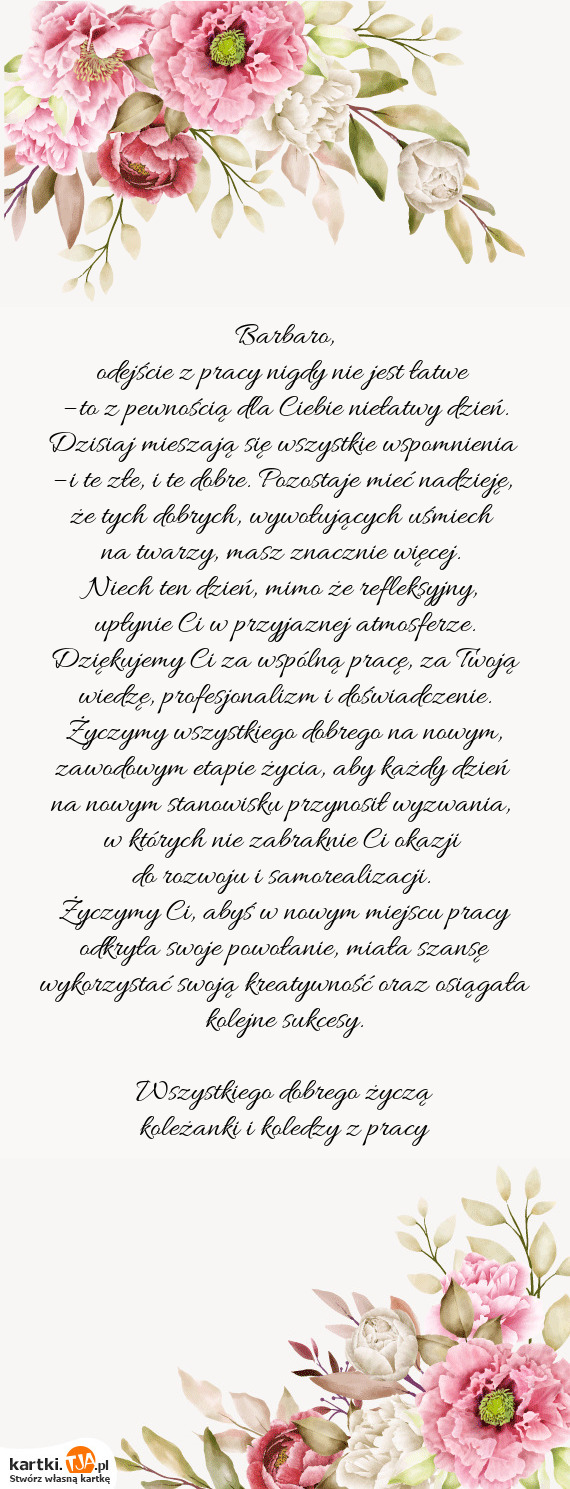 Barbaro,
odejście z pracy nigdy nie jest łatwe
–to z pewnością dla Ciebie niełatwy dzień.
Dzisiaj mieszają się wszystkie wspomnienia
–i te złe, i te dobre. Pozostaje mieć nadzieję,
że tych dobrych, wywołujących uśmiech
na twarzy, masz znacznie więcej.
Niech ten dzień, mimo że refleksyjny,
upłynie Ci w przyjaznej atmosferze.
Dziękujemy Ci za wspólną pracę, za Twoją
wiedzę, profesjonalizm i doświadczenie.
Życzymy wszystkiego dobrego na nowym,
zawodowym etapie życia, aby każdy dzień
na nowym stanowisku przynosił wyzwania,
w których nie zabraknie Ci okazji
do rozwoju i samorealizacji.
Życzymy Ci, abyś w nowym miejscu pracy
odkryła swoje powołanie, miała szansę
wykorzystać swoją kreatywność oraz osiągała
kolejne sukcesy.
Wszystkiego dobrego życzą
koleżanki i koledzy z pracy
kartki.TJA.pl
Stwórz własną kartkę